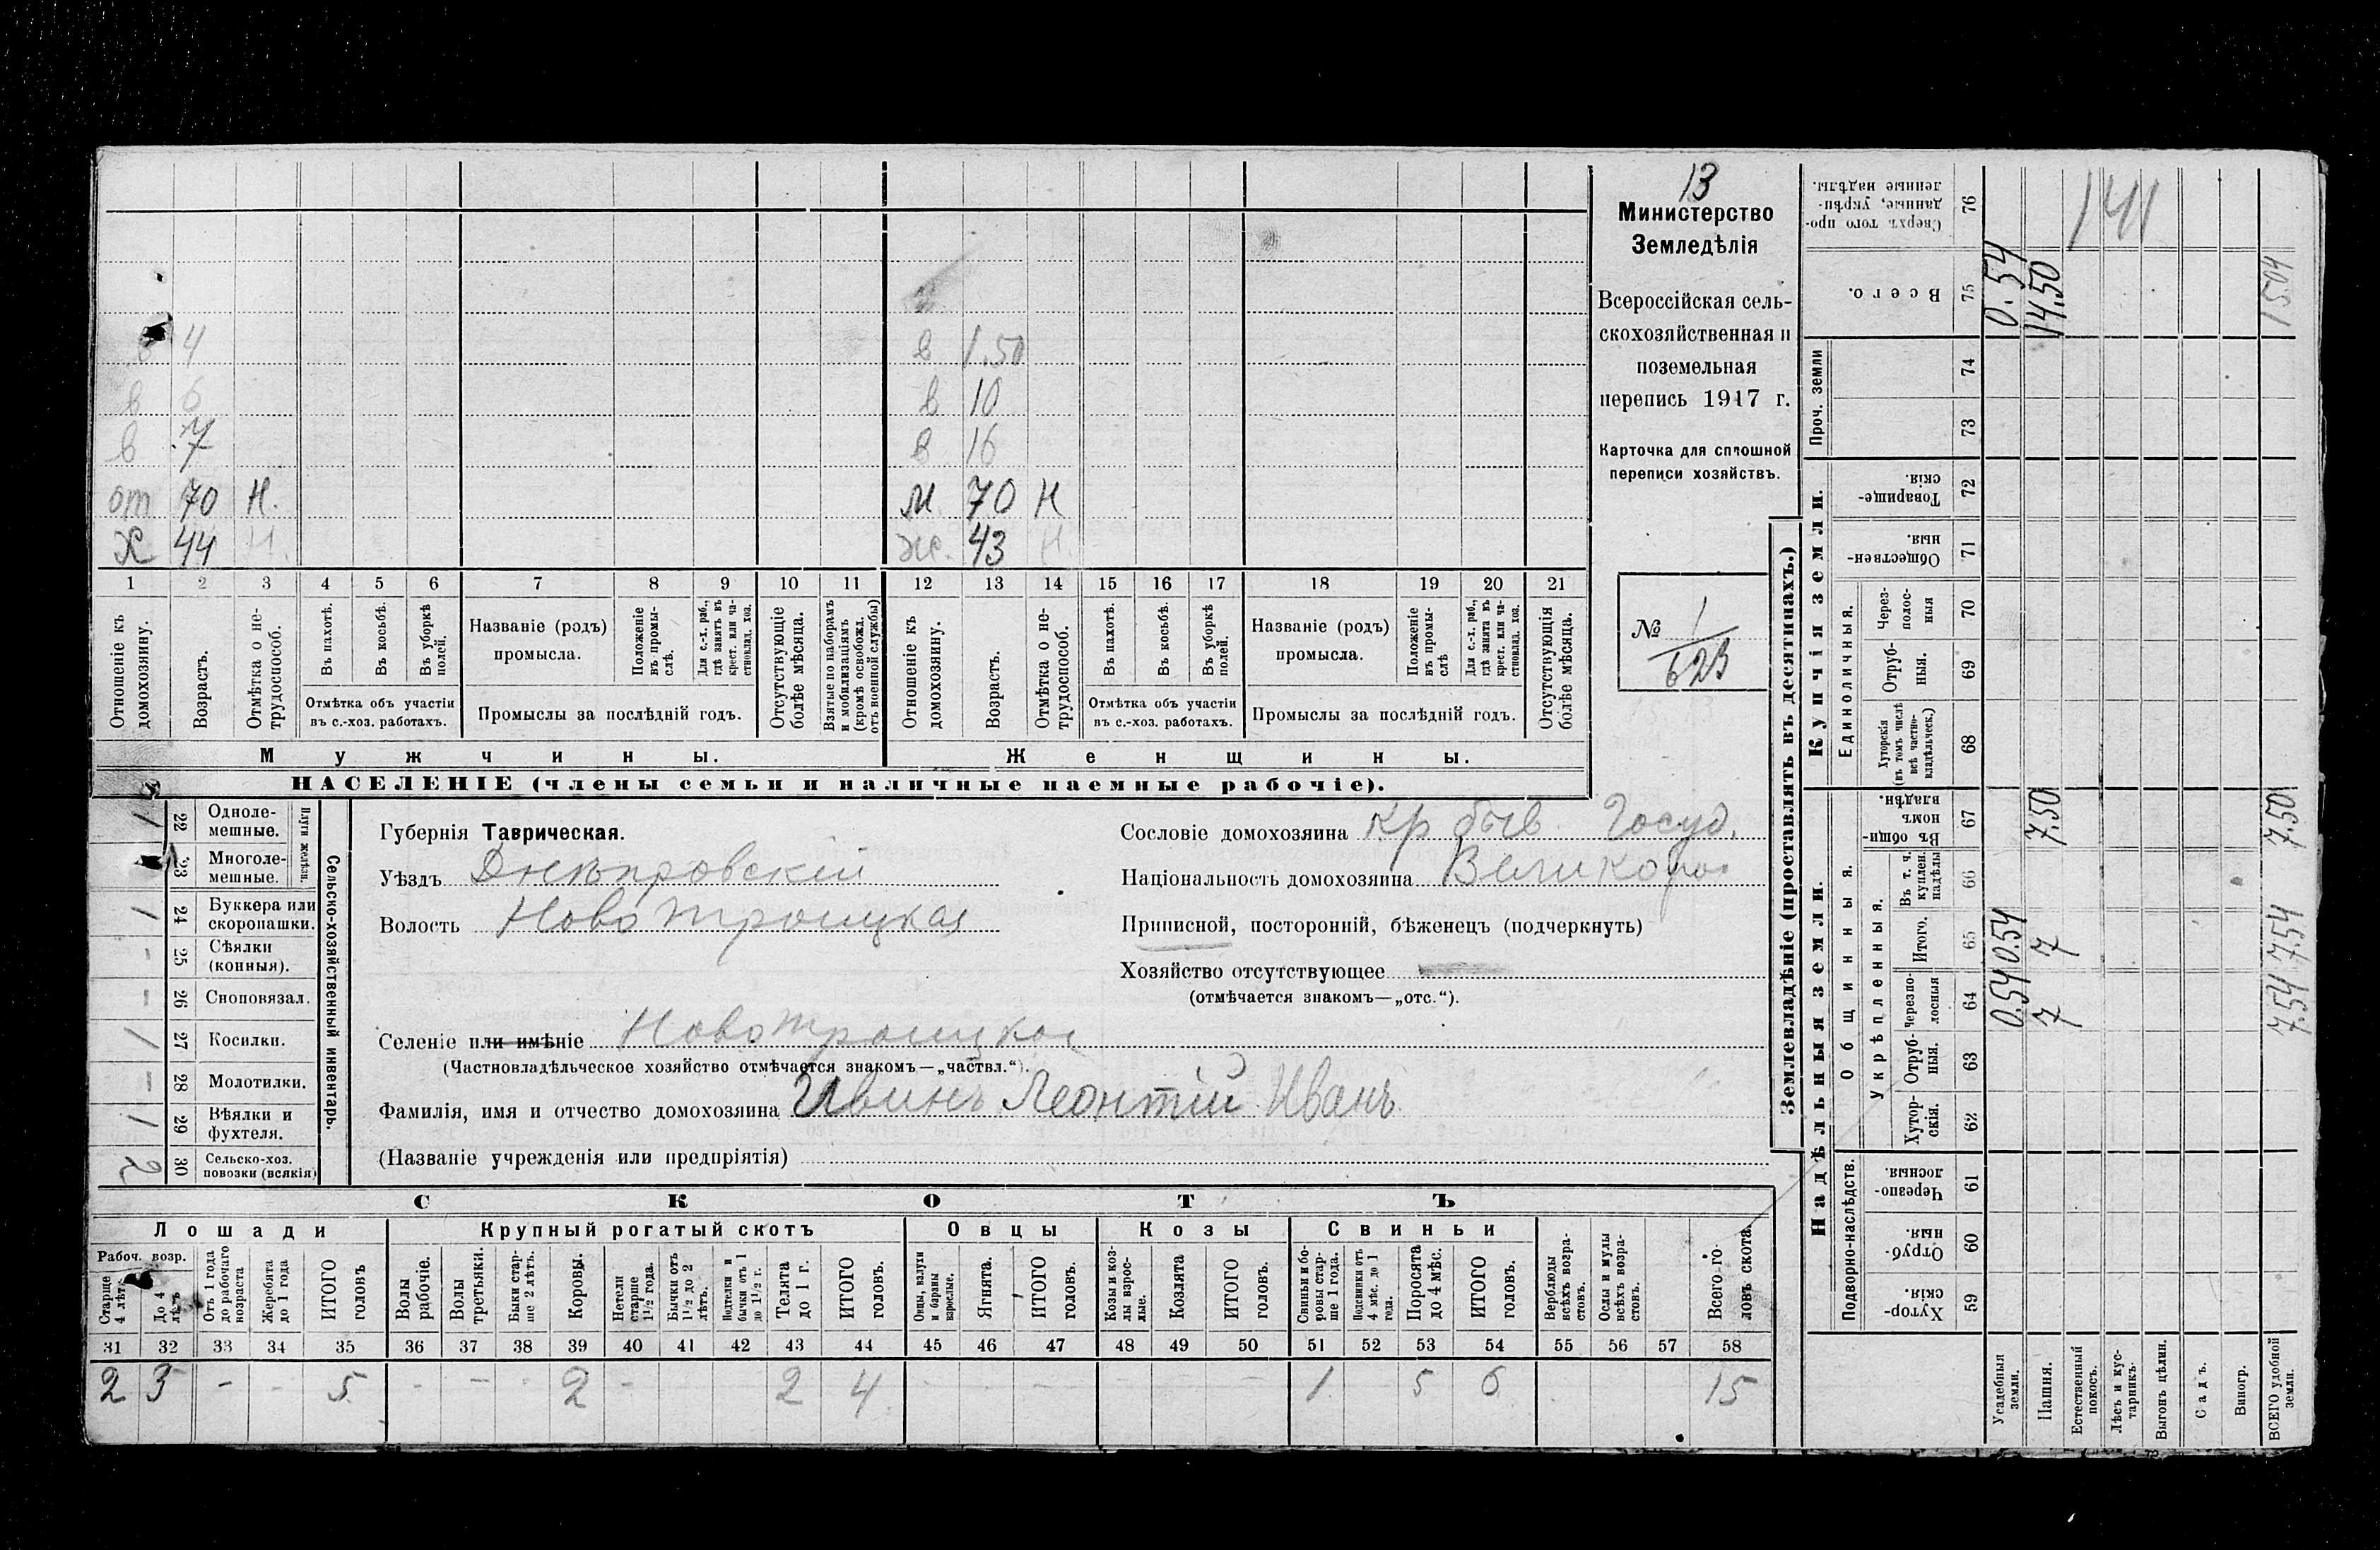 13
Министерство
Земледѣлія
Всероссійская сель-
скохозяйственная и
поземельная
перепись 1917 г.
Карточка для сплошной
переписи хозяйствъ.
№ 1/623
4
в 6
в 7
от 70 Н.
Х 44 Н.
в 1.50
в 10
в 16
м 70 Н
ж. 43 Н.
1 2 3 4 5 6 7 8 9 10 11 12 13 14 15 16 17 18 19 20 21
Отношеніе къ домохозяину.
Возрастъ.
Отмѣтка о не-трудоспособ.
Въ пахотѣ.
Въ косьбѣ.
Въ уборкѣ полей.
Отмѣтка объ участіи въ с.-хоз. работахъ.
Названіе (родъ) промысла.
Положеніе въ промы-слѣ.
Для с.-х. раб., гдѣ занятъ въ крест. или ча-стновлад. хоз.
Промыслы за послѣдній годъ.
Отсутствующіе болѣе мѣсяца.
Взятые по наборамъ и мобилизаціямъ (кромѣ освобожд. отъ военной службы)
Отношеніе къ домохозяину.
Возрастъ.
Отмѣтка о не-трудоспособ.
Въ пахотѣ.
Въ косьбѣ.
Въ уборкѣ полей.
Отмѣтка объ участіи въ с.-хоз. работахъ.
Названіе (родъ) промысла.
Положеніе въ промы-слѣ
Для с.-х. раб., гдѣ занята въ крест. или ча-стновлад. хоз.
Промыслы за послѣдній годъ.
Отсутствующія болѣе мѣсяца.
Мужчины.
Женщины.
НАСЕЛЕНІЕ (члены семьи и наличные наемные рабочіе).
Сельско-хозяйственный инвентарь.
Плуги желѣзн.
22 Одноле-мешные. 1
23 Многоле-мешные. 1
24 Буккера или скоропашки. 1
25 Сѣялки (конныя). -
26 Сноповязал. -
27 Косилки. 1
28 Молотилки. -
29 Вѣялки и фухтеля. 1
30 Сельско-хоз. повозки (всякія) 2
Губернія Таврическая.
Уѣздъ Днѣпровскій
Волость Ново Троицкая
Селеніе или имѣніе Ново Троицкое
(Частновладѣльческое хозяйство отмѣчается знакомъ—„частвл.“).
Фамилія, имя и отчество домохозяина Ивинъ Леонтій Иванъ
(Названіе учрежденія или предпріятія)
Сословіе домохозяина кр быв Госуд.
Національность домохозяина Великорос
Приписной, посторонній, бѣженецъ (подчеркнуть)
Хозяйство отсутствующее
(отмѣчается знакомъ—„отс.“).
СКОТЪ
Лошади
Крупный рогатый скотъ
Овцы
Козы
Свиньи
Рабоч. возр.
Старше 4 лѣтъ
До 4 лѣтъ
Отъ 1 года до рабочаго возраста
Жеребята до 1 года
ИТОГО головъ
Волы рабочіе.
Волы третьяки.
Быки стар-ше 2 лѣтъ.
Коровы.
Нетели старше 1½ года.
Бычки отъ 1½ до 2 лѣтъ.
Подтелки и бычки отъ 1 до 1½ г.
Телята до 1 г.
ИТОГО головъ.
Овцы, валухи и бараны взрослые.
Ягнята.
ИТОГО головъ.
Козы и коз-лы взрос-лые.
Козлята
ИТОГО головъ.
Свиньи и бо-ровы стар-ше 1 года.
Подсвинки отъ 4 мѣс. до 1 года.
Поросята до 4 мѣс.
ИТОГО головъ.
Верблюды всѣхъ возра-стовъ.
Ослы и мулы всѣхъ возра-стовъ.
Всего го-ловъ скота
31 32 33 34 35 36 37 38 39 40 41 42 43 44 45 46 47 48 49 50 51 52 53 54 55 56 57 58
2 3 - - 5 - - - 2 - 2 4 - - - 1 5 6 15
Землевладѣніе (проставлять въ десятинахъ.)
Надѣльныя земли.
Купчія земли.
Проч. земли
Подворно-наслѣдств.
Общинныя.
Укрѣпленныя.
Единоличныя.
59 Хутор-скія.
60 Отруб-ныя.
61 Черезпо-лосныя.
62 Хутор-скія.
63 Отруб-ныя.
64 Черезпо-лосныя
65 Итого.
66 Въ т. ч. куплен. надѣлы
67 Въ общин-номъ владѣн.
68 Хуторскія (въ томъ числѣ всѣ частно-владѣльческ.)
69 Отруб-ныя.
70 Через-полос-ныя
71 Обществен-ныя.
72 Товарище-скія.
73
74
75 Всего.
76 Сверхъ того про-данные, укрѣп-ленные надѣлы.
Усадебныя земли. 0.54 0.54 0.54
Пашня. 7 7 7.50 14.50
Естественный покосъ.
Лѣсъ и кус-тарникъ.
Выгонъ цѣлин.
Садъ.
Виногр.
ВСЕГО удобной земли. 7.54 7.54 7.50 1504
141